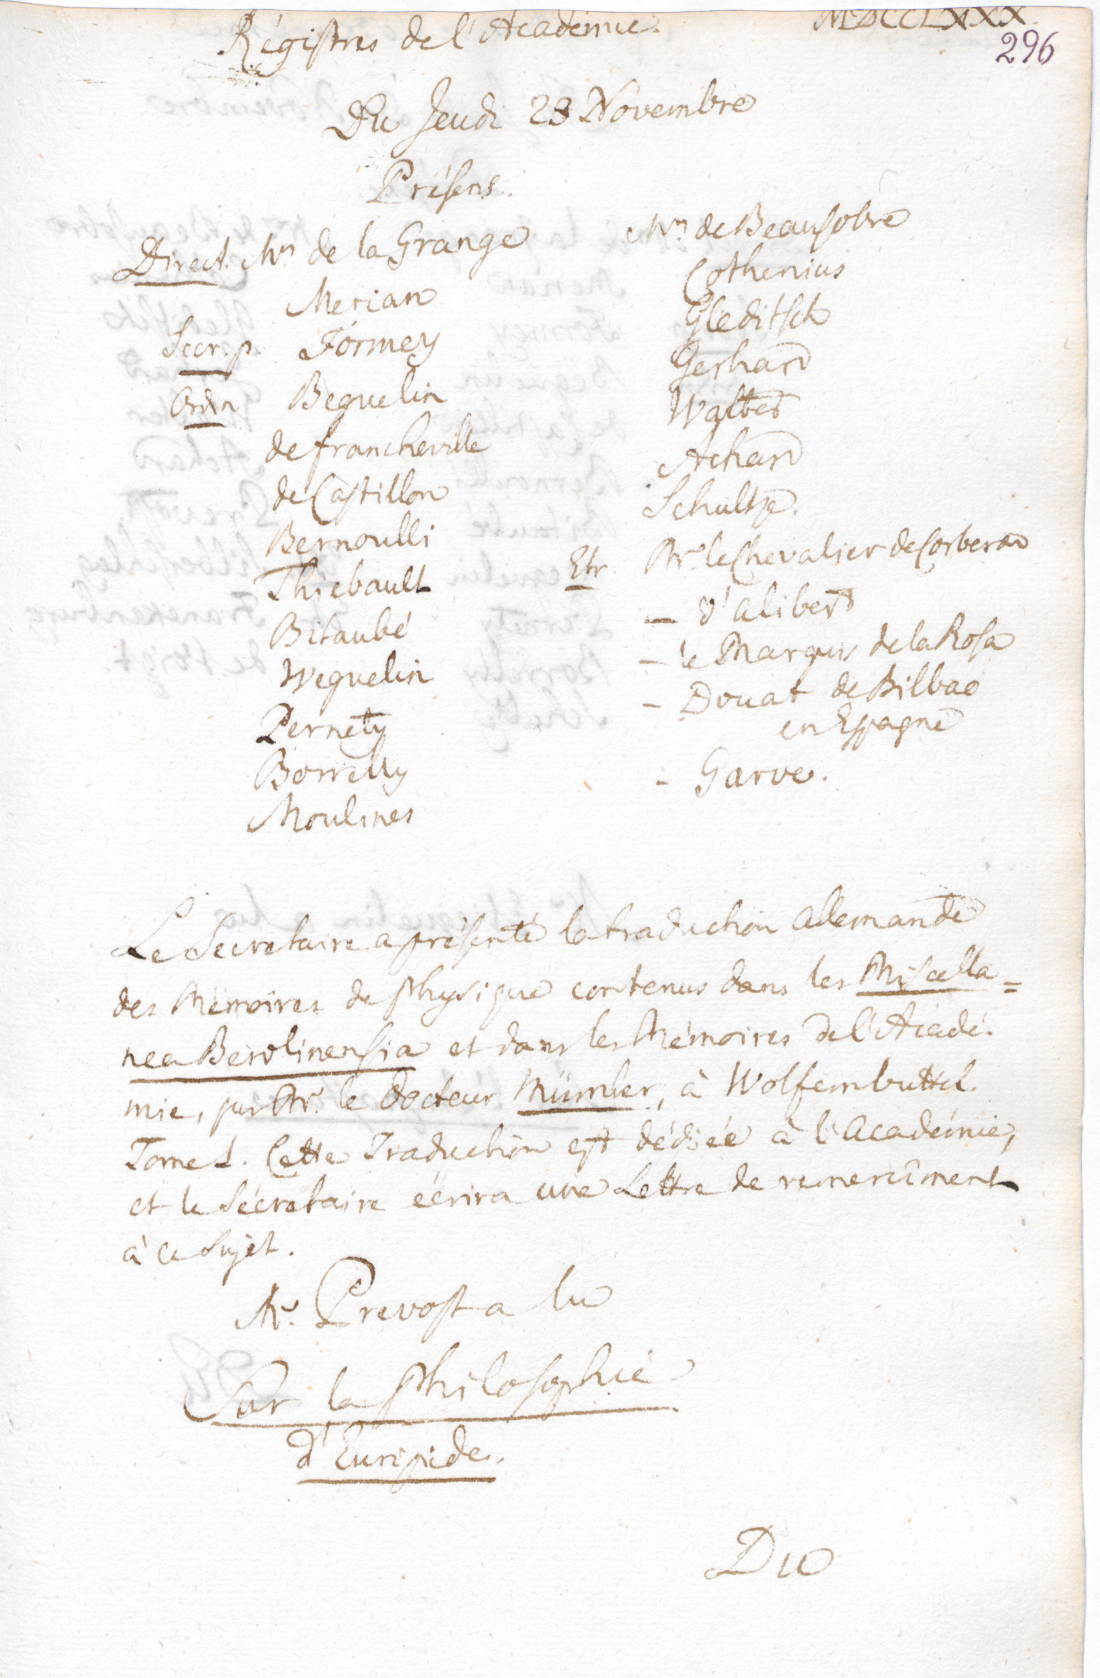 Régistres de l'Academie. MDCCLXXX.
296
Du Jeudi 23 Novembre
Présens.
Direct. Mrs de la Grange
Merian
Secr. p. Formey
Ordn Beguelin
de francheville
de Castillon
Bernoulli
Thiebault
Bitaubé
Weguelin
Pernety
Borrelly
Moulines
Mrs de Beausobre
Cothenius
Gleditsch
Gerhard
Walter
Achard
Schultze.
Etr. Mr. le Chevalier de Corberon
— d'Alibert
— le Marquis de la Rosa
— Douat de Bilbao
en Espagne
— Garve.
Le Secretaire a présenté la traduction allemande
des Mémoires de physique contenus dans les Miscella=
nea Berolinensia et dans les Mémoires de l'Acadé-
mie, par Mr. le Docteur Mümler, à Wolfembuttel.
Tome I. Cette Traduction est dédiée à l'Académie,
et le Sécretaire écrira une Lettre de remerciment
à ce sujet.
Mr. Prevost a lu
Sur la philosophie
d'Euripide.
Du